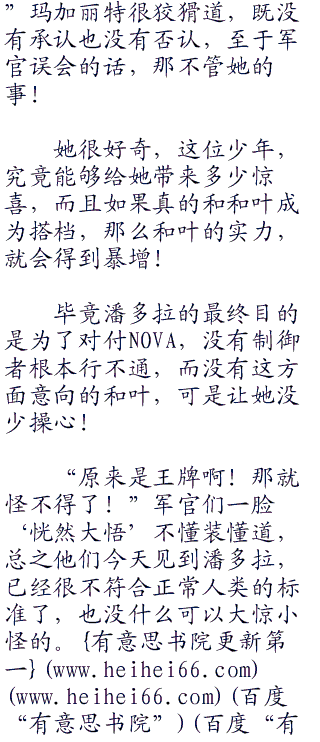 ”玛加丽特很狡猾道，既没
有承认也没有否认，至于军
官误会的话，那不管她的
事！
她很好奇，这位少年，
究竟能够给她带来多少惊
喜，而且如果真的和和叶成
为搭档，那么和叶的实力，
就会得到暴增！
毕竟潘多拉的最终目的
是为了对付NOVA，没有制御
者根本行不通，而没有这方
面意向的和叶，可是让她没
少操心！
“原来是王牌啊！那就
怪不得了！”军官们一脸
‘恍然大悟’不懂装懂道，
总之他们今天见到潘多拉，
已经很不符合正常人类的标
准了，也没什么可以大惊小
怪的。{有意思书院更新第
一}(www.heihei66.com)
(www.heihei66.com)(百度
“有意思书院”)(百度“有